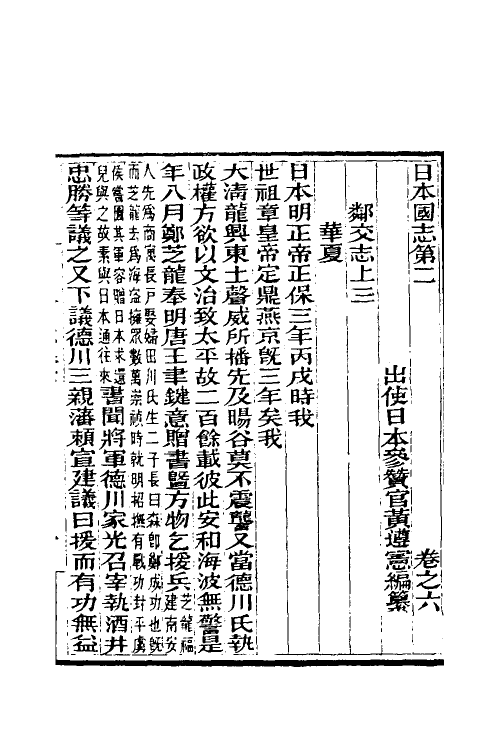 日本國志第二　　　　　　卷之六
出使日本參贊官黃遵憲編纂
鄰交志上三
華夏
日本明正帝正保三年丙戌時我
世祖章皇帝定鼎燕京旣三年矣我
大清龍興東土聲威所播先及暘谷莫不震讋又當德川氏執
政權方欲以文治致太平故二百餘載彼此安和海波無警是
年八月鄭芝龍奉明唐王聿鍵意贈書曁方物乞援兵芝龍福建南安
人先爲商寓長戸娶婦田川氏生二子長曰森卽鄭成功也旣
而芝龍去爲海盜擁眾數萬崇禎時就明招撫有戰功封平虜
侯嘗圖其軍容贈日本求還
兒與之故素與日本通往來書聞將軍德川家光召宰執酒井
忠勝等議之又下議德川三親藩賴宣建議曰援而有功無益